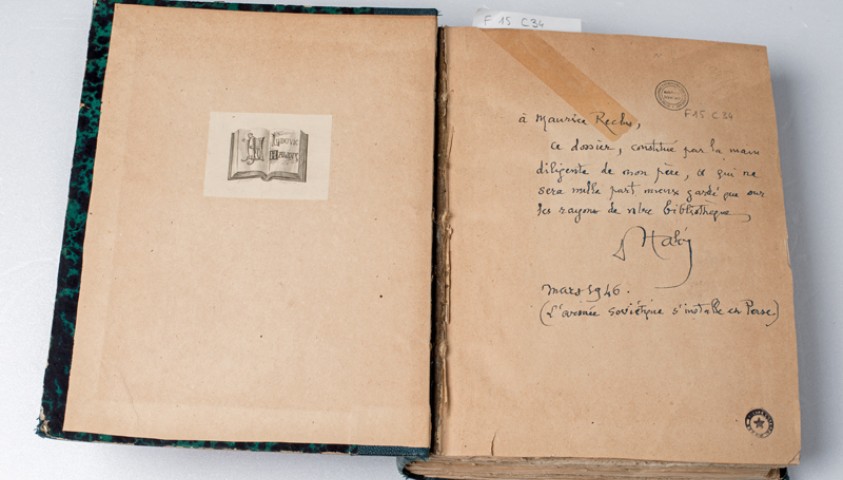 F 15 C34
F 15 C 34
à Maurice
ce dossier, constitué par la main
diligente de mon père, et qui ne
sera nulle part mieux gardé que sur
les rayons de votre bibliothèque,
mars 1946.
(L'armée soviétique s'installe en Perse)